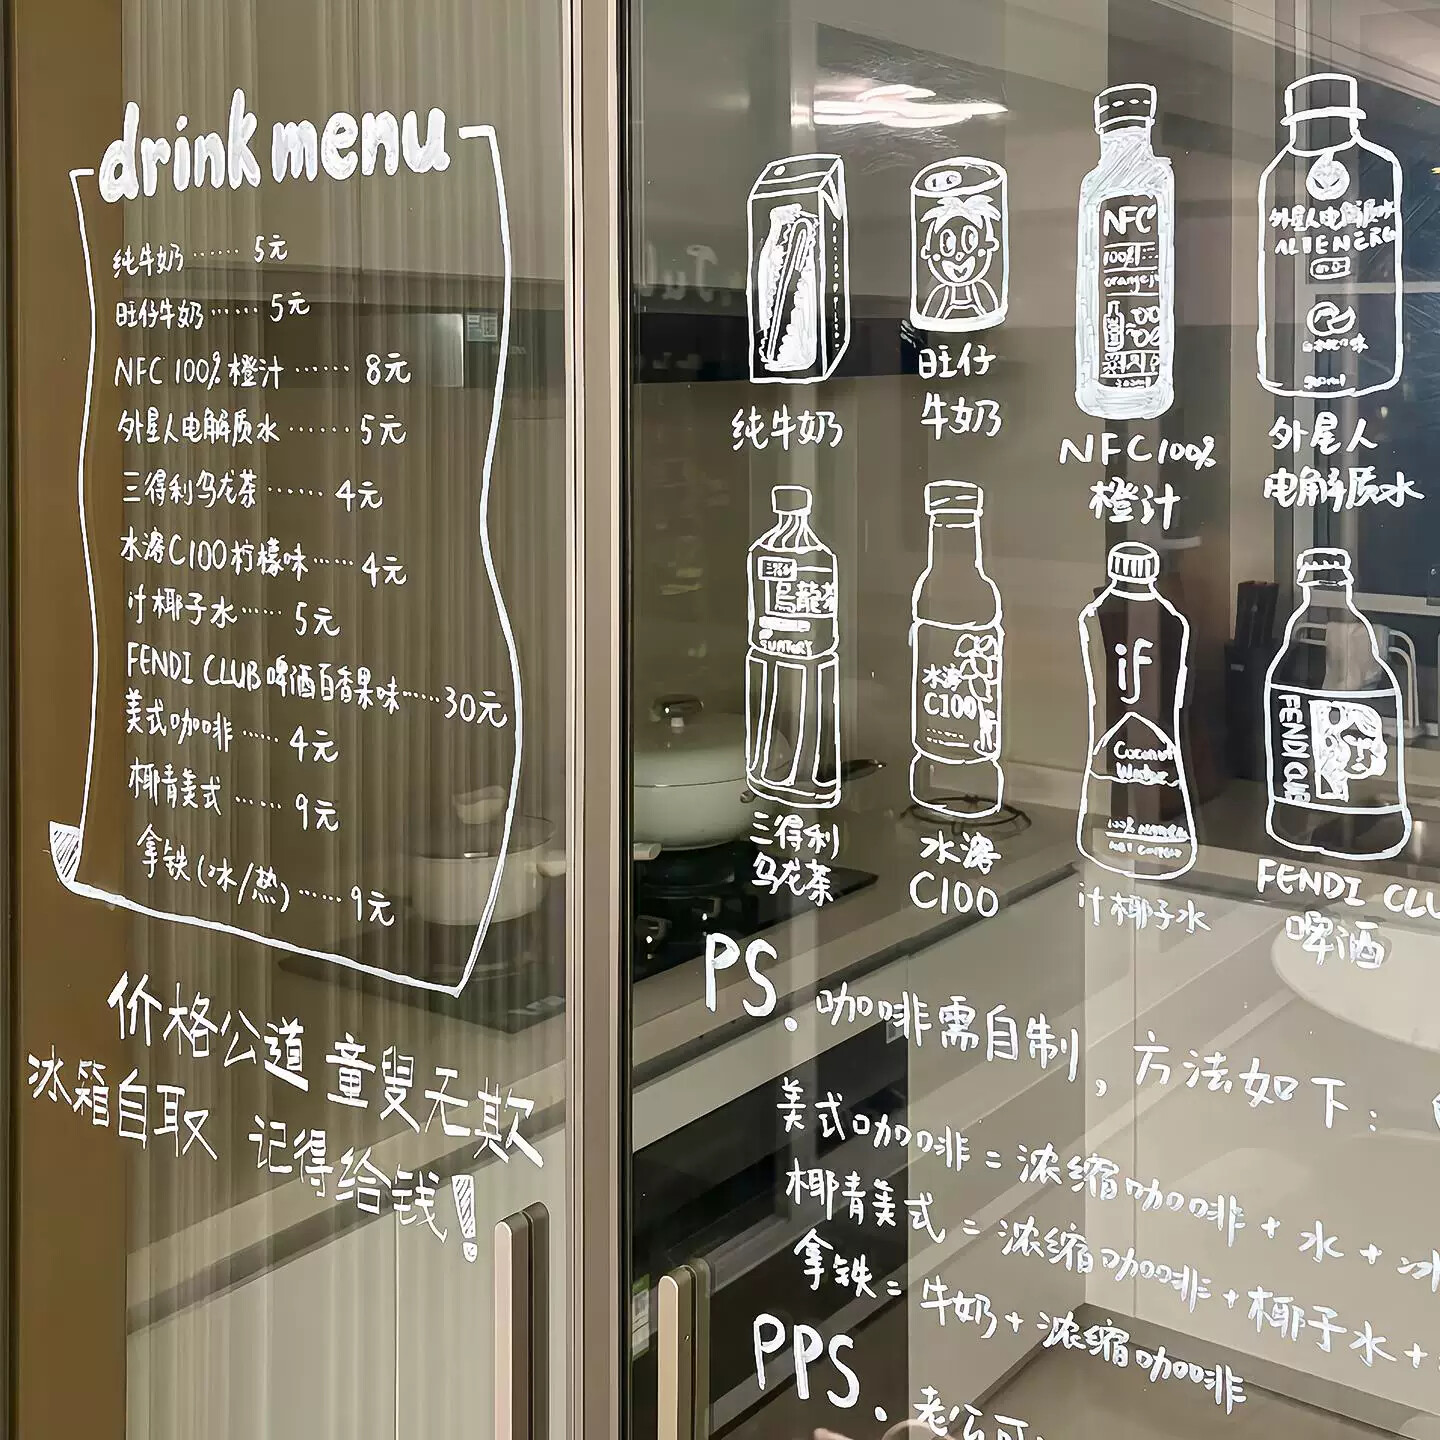 drink menu
纯牛奶······5元
旺仔牛奶······5元
NFC 100%橙汁······8元
外星人电解质水······5元
三得利乌龙茶······4元
水溶C100柠檬味·····4元
if椰子水·····5元
FENDI CLUB啤酒百香果味·····30元
美式咖啡·····4元
椰青美式······9元
拿铁(冰/热)·····9元
价格公道 童叟无欺
冰箱自取 记得给钱!
纯牛奶
旺仔
牛奶
NFC
100%
NFC100%
橙汁
外星人电解质水
ALIENERG
外星人
电解质水
三得利
烏龍茶
SUNTORY
三得利
乌龙茶
水溶
C100
水溶
C100
if
Coconut
Water
if椰子水
FENDI CLUB
FENDI CLU
啤酒
PS.咖啡需自制,方法如下:
美式咖啡=浓缩咖啡+水+冰
椰青美式=浓缩咖啡+椰子水+
拿铁=牛奶+浓缩咖啡
PPS.老公可